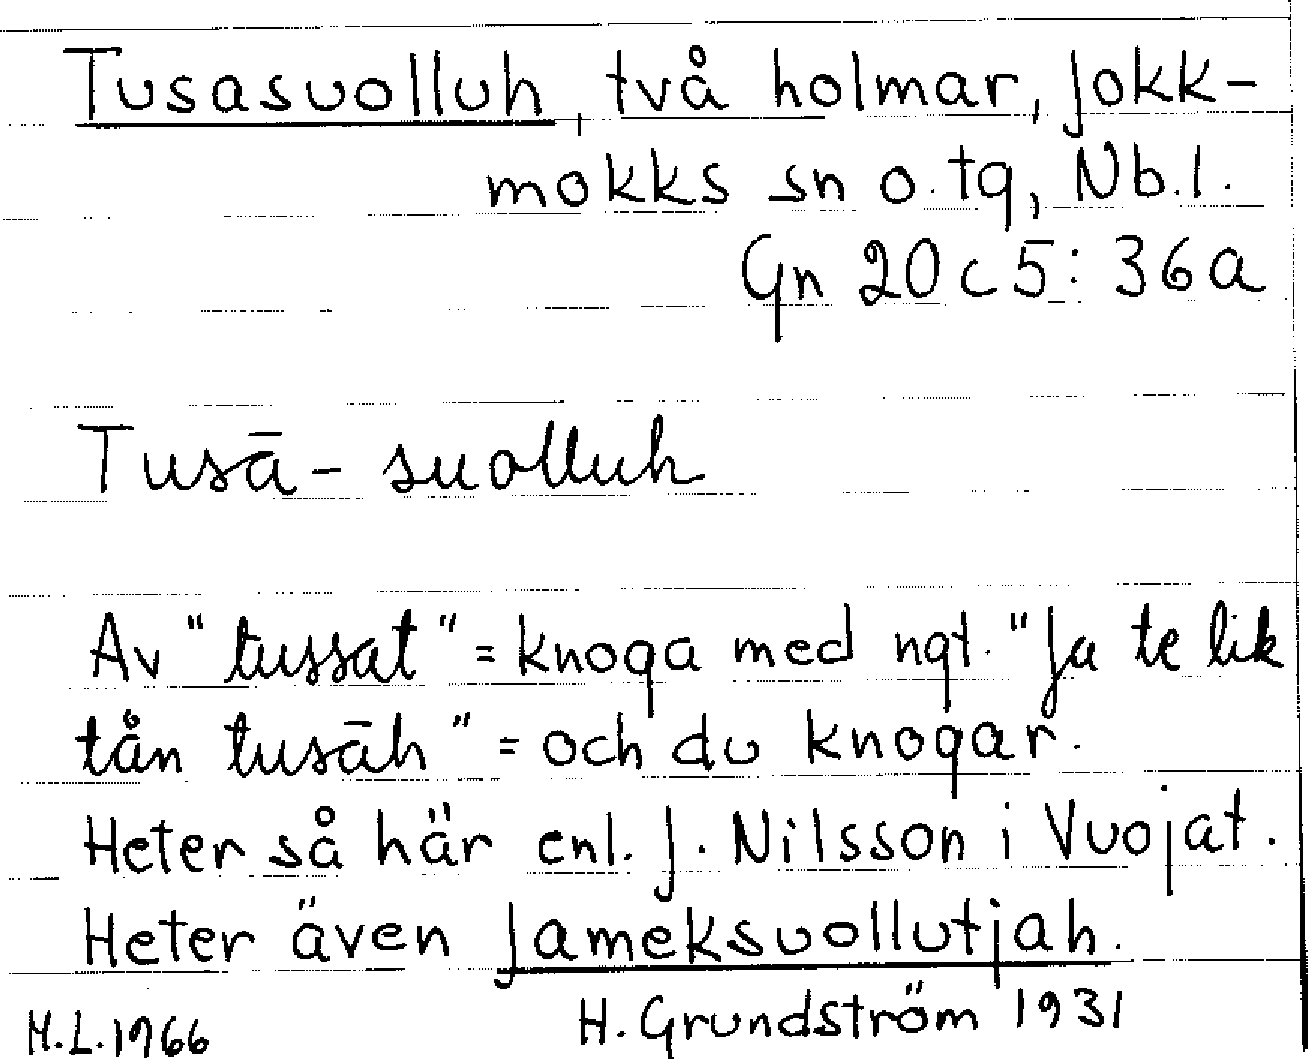 Tusasuolluh, två holmar, Jokk-
mokks sn o. tg, Nb.l.
Gn 20c5: 36a
Tusā-suolluh
Av "tussat" = knoga med ngt. "Ja te lik
tån tusāh" = och du knogar.
Heter så här enl. J. Nilsson i Vuojat.
Heter även Jameksuollutjah.
H. Grundström 1931
M.L.1966